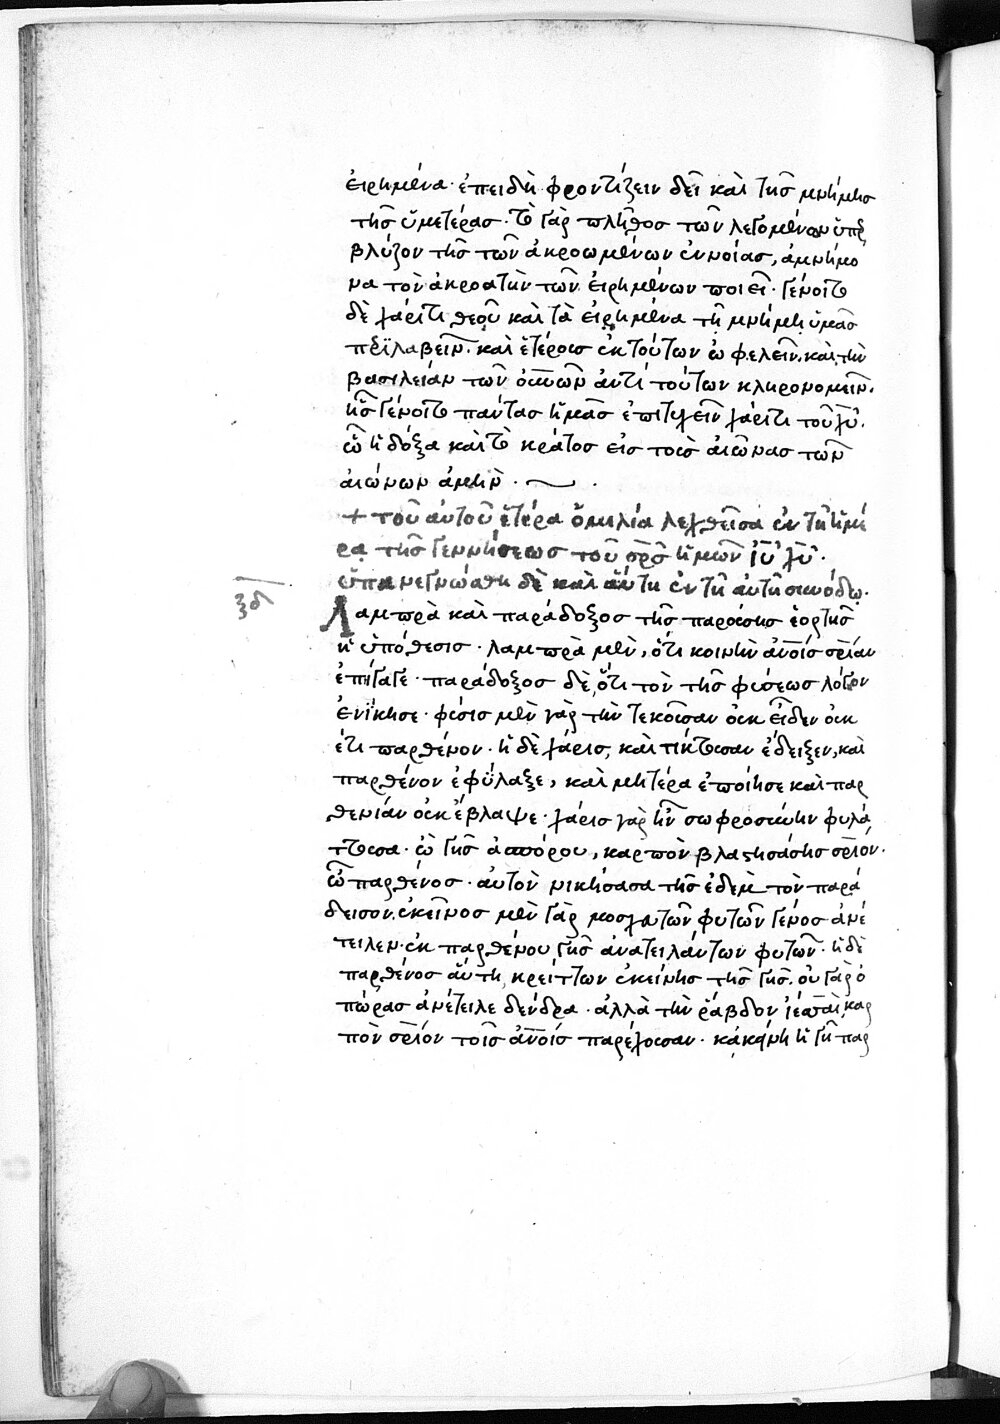 εἰρημένα· ἐπειδὴ φροντίζειν δεῖ καὶ τῆς μνήμης
τῆς ὑμετέρας· τὸ γὰρ πλῆθος τῶν λεγομένων ὑπερ
βλύζον τῆς τῶν ἀκροωμένων ἐννοίας, ἀμνήμο
να τὸν ἀκροατὴν τῶν εἰρημένων ποιεῖ· γένοιτο
δὲ χάριτι θεοῦ καὶ τὰ εἰρημένα τῇ μνήμῃ ὑμᾶς
περιλαβεῖν· καὶ ἑτέροις ἐκ τούτων ὠφελεῖν· καὶ τὴν
βασιλείαν τῶν οὐνῶν ἀντὶ τούτων κληρονομεῖν·
ἧς γένοιτο πάντας ἡμᾶς ἐπιτυχεῖν χάριτι τοῦ χῦ·
ᾧ ἡ δόξα καὶ τὸ κράτος εἰς τοὺς αἰῶνας τῶν
αἰώνων ἀμήν·
+ τοῦ αὐτοῦ ἑτέρα ὁμιλία λεχθεῖσα ἐν τῇ ἡμέ
ρᾳ τῆς γεννήσεως τοῦ σρς ἡμῶν ἰῦ χῦ·
ὑπανεγνώσθη δὲ καὶ αὕτη ἐν τῇ αὐτῇ συνόδῳ·
ξδ
Λαμπρὰ καὶ παράδοξος τῆς παρούσης ἑορτῆς
ἡ ὑπόθεσις· λαμπρὰ μὲν, ὅτι κοινὴν ἀνοις σρίαν
ἐπήγαγε· παράδοξος δὲ, ὅτι τὸν τῆς φύσεως λόγον
ἐνίκησε· φύσις μὲν γὰρ τὴν τεκοῦσαν οὐκ εἶδεν οὐκ
έτι παρθένον· ἡ δὲ χάρις, καὶ τίκτουσαν ἔδειξεν, καὶ
παρθένον ἐφύλαξε, καὶ μητέρα ἐποίησε καὶ παρ
θενίαν οὐκ ἔβλαψε· χάρις γὰρ ἦν σωφροσύνην φυλά
ττουσα· ὢ γῆς ἀσπόρου, καρπὸν βλαστησάσης σριον·
ὢ παρθένος· αὐτὸν νικήσασα τῆς ἐδὲμ τὸν παρά
δεισον· ἐκεῖνος μὲν γὰρ μόσχων φυτῶν γένος ἀνέ
τειλεν· ἐκ παρθένου γῆς ἀνατειλάντων φυτῶν· ἡ δὲ
παρθένος αὕτη, κρείττων ἐκείνης τῆς γῆς· οὐ γὰρ ὀ
πώρας ἀνέτειλε δένδρα· ἀλλὰ τὴν ῥάβδον ἰεσσαὶ, καρ
πὸν σριον τοῖς ἀνοις παρέχουσαν· κἀκείνη ἡ γῆ παρ